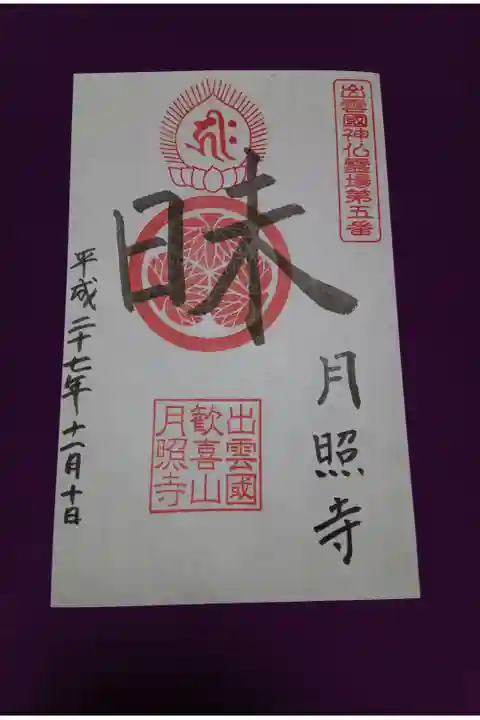 出雲國神仏靈場第五番
月照寺
昧
出雲國
歡喜山
月照寺
平成二十七年十一月十日